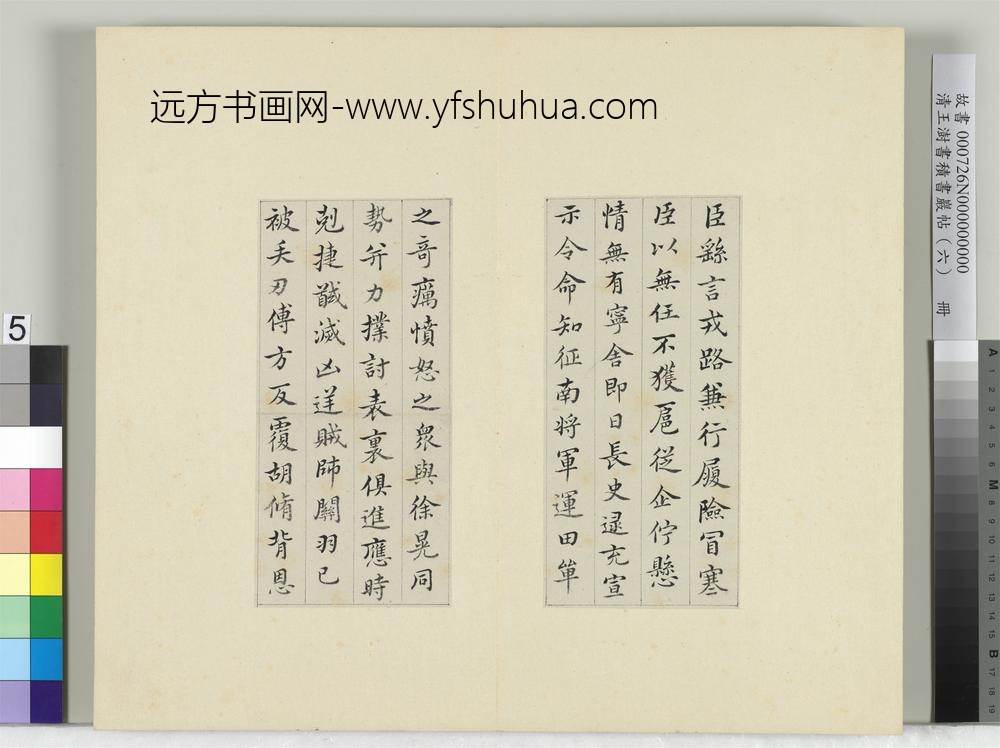 远方书画网-www.yfshuhua.com
臣繇言戎路兼行履險冒寒
臣以無任不獲扈從企佇懸
情無有寧舍即日長史逯充宣
示令命知征南将軍運田單
之奇厲憤怒之衆與徐晃同
勢并力撲討表裏俱進應時
剋捷馘滅凶逆賊帥關羽已
被矢刃傅方反覆胡脩背恩
故書 000726N000000000
清王澍書積書巖帖（六） 冊
5
A 1 2 3 4 5 6 M 8 9 10 11 12 13 14 15 B 17 18 19